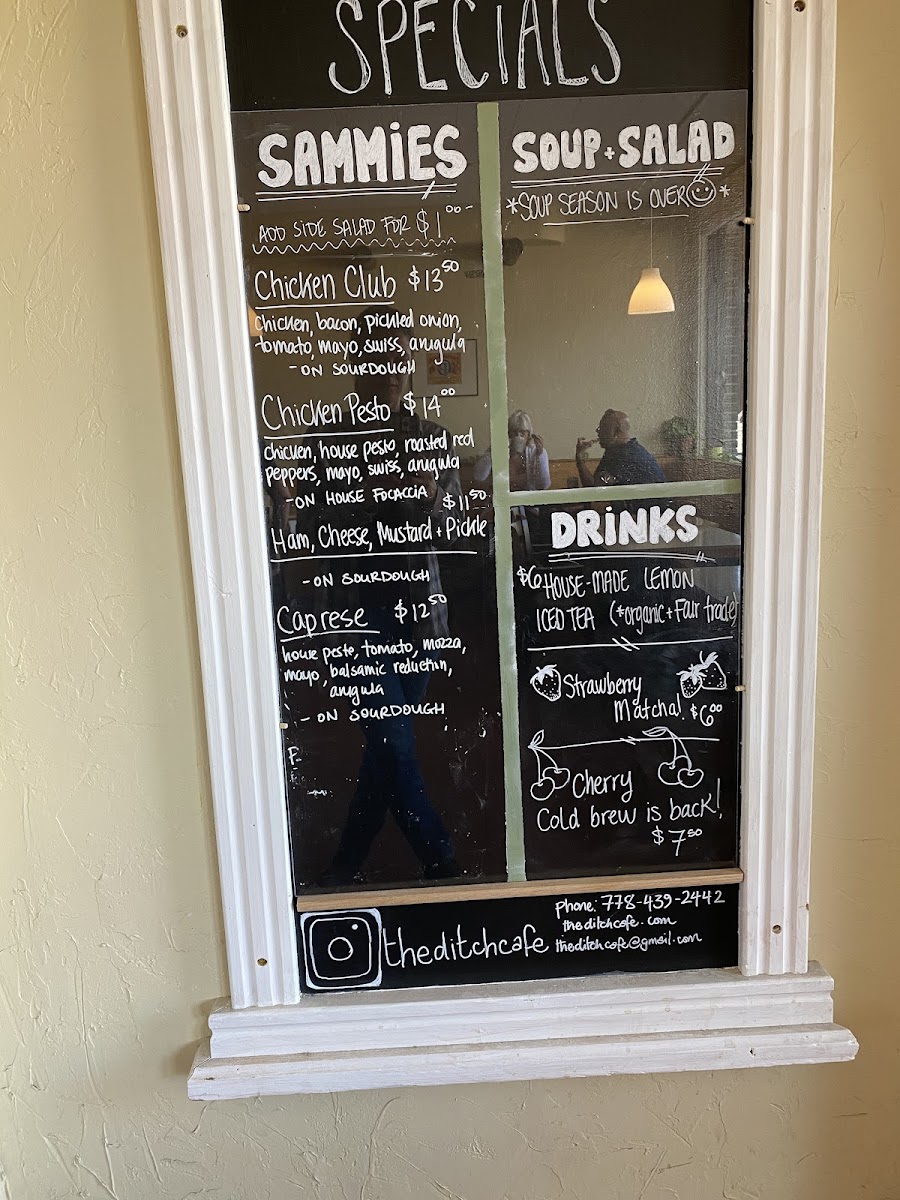 SPECIALS
SAMMiES
ADD SIDE SALAD FOR $1.00
Chicken Club $13.50
chicken, bacon, pickled onion,
tomato, mayo, swiss, arugula
- ON SOURDOUGH
Chicken Pesto $14.00
chicken, house pesto, roasted red
peppers, mayo, swiss, arugula
- ON HOUSE FOCACCIA
$11.50
Ham, Cheese, Mustard + Pickle
- ON SOURDOUGH
Caprese $12.50
house pesto, tomato, mozza,
mayo, balsamic reduction,
arugula
- ON SOURDOUGH
SOUP + SALAD
*SOUP SEASON IS OVER*
DRiNKS
$6 HOUSE-MADE LEMON
ICED TEA (*organic + Fair trade)
Strawberry
Matcha! $6.00
Cherry
Cold brew is back!
$7.50
theditchcafe
phone: 778-439-2442
theditchcafe.com
theditchcafe@gmail.com